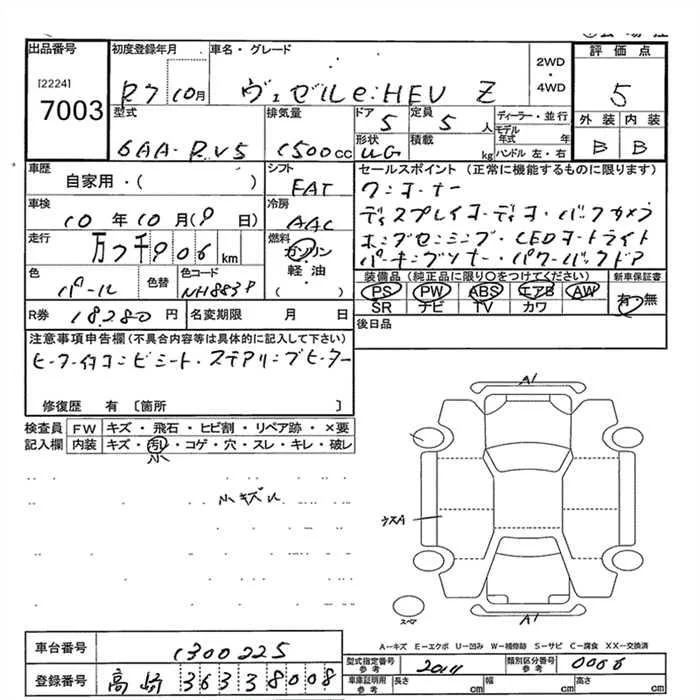 出品番号
[2224]
7003
初度登録年月
R7 10月
車名・グレード
ヴェゼル e:HEV Z
2WD
・
4WD
評価点
5
外装 内装
B B
型式
6AA-RV5
排気量
1500cc
ドア 5
定員 5 人
形状 WG
積載 kg
ディーラー・並行
モデル年式 年
ハンドル 左・右
車歴
自家用・( )
シフト
FAT
車検
10年10月(9日)
冷房
AAC
走行
万7千906km
燃料
ガソリン
軽・油
( )
色
パール
色替
色コード
NH883P
R券 18,280円
名変期限 月 日
セールスポイント (正常に機能するものに限ります)
ワンオーナー
ディスプレイオーディオ・バックカメラ
ホンダセンシング・LEDヘッドライト
パーキングソナー・パワーバックドア
装備品 (純正品に限り○をつけてください)
PS PW ABS エアB AW
SR ナビ TV カワ
新車保証書
有・無
後日品
注意事項申告欄(不具合内容等は具体的に記入して下さい)
ヒーター付コンビシート・ステアリングヒーター
修復歴 有〔箇所 〕
検査員記入欄
FW キズ・飛石・ヒビ割・リペア跡・×要
内装 キズ・汚れ・コゲ・穴・スレ・キレ・破レ
小
小キズル
A1
ウスA
スペア
A1
A-キズ E-エクボ U-凹み W-補修跡 S-サビ C-腐食 XX-交換済
車台番号 1300225
登録番号 高崎 363 38008
型式指定番号 参考 20111
類別区分番号 参考 0066
車庫証明用 参考 長さ cm 幅 cm 高さ cm